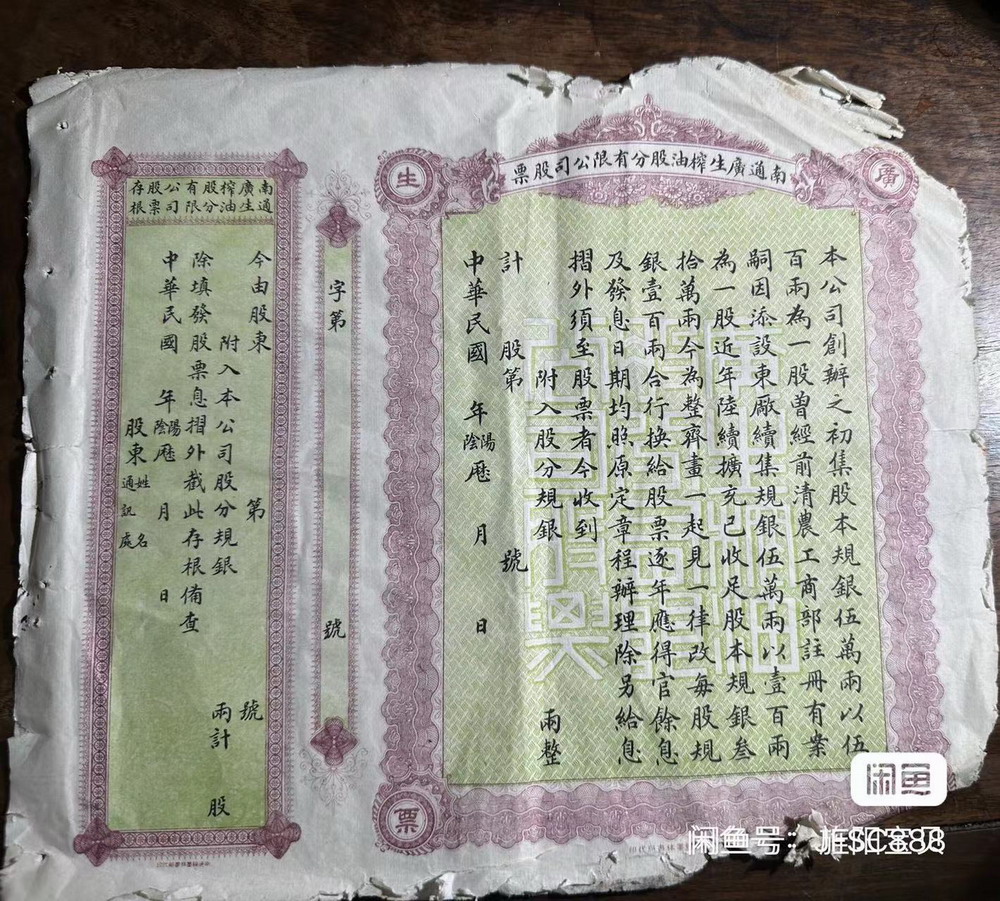 南通廣生榨油股分有限公司股票
廣
生
票
本公司創辦之初集股本規銀伍萬兩以伍
百兩為一股曾經前清農工商部註冊有業
嗣因添設東廠續集規銀伍萬兩以壹百兩
為一股近年陸續擴充已收足股本規銀叁
拾萬兩今為整齊畫一起見一律改每股規
銀壹百兩合行換給股票逐年應得官餘息
及發息日期均照原定章程辦理除另給息
摺外須至股票者今收到
附入股分規銀 兩整
計 股第 號
中華民國 年 陽陰厯 月 日
字第 號
南通廣生榨油股分有限公司股票存根
今由股東 第 號
附入本公司股分規銀 兩計 股
除填發股票息摺外截此存根備查
中華民國 年 陽陰厯 月 日
股東 姓名 通訊處
闲鱼
闲鱼号：